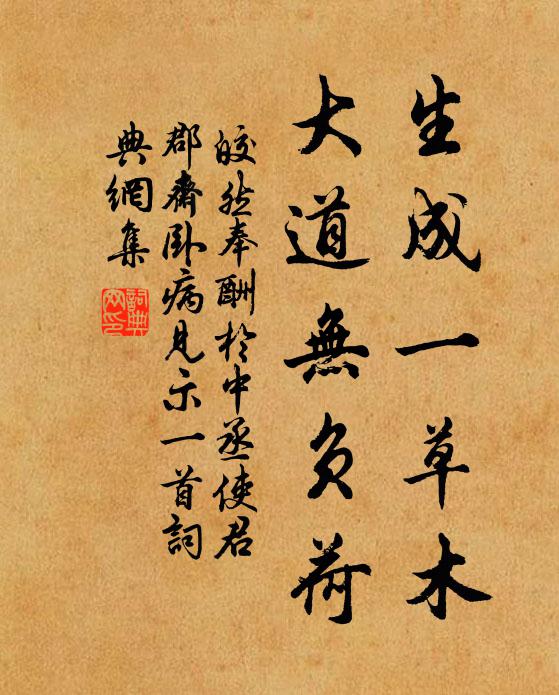 生成一草木
大道無負荷
皎然奉酬於中丞使君
郡齋卧病見示一首詞
典網集
詞典網印